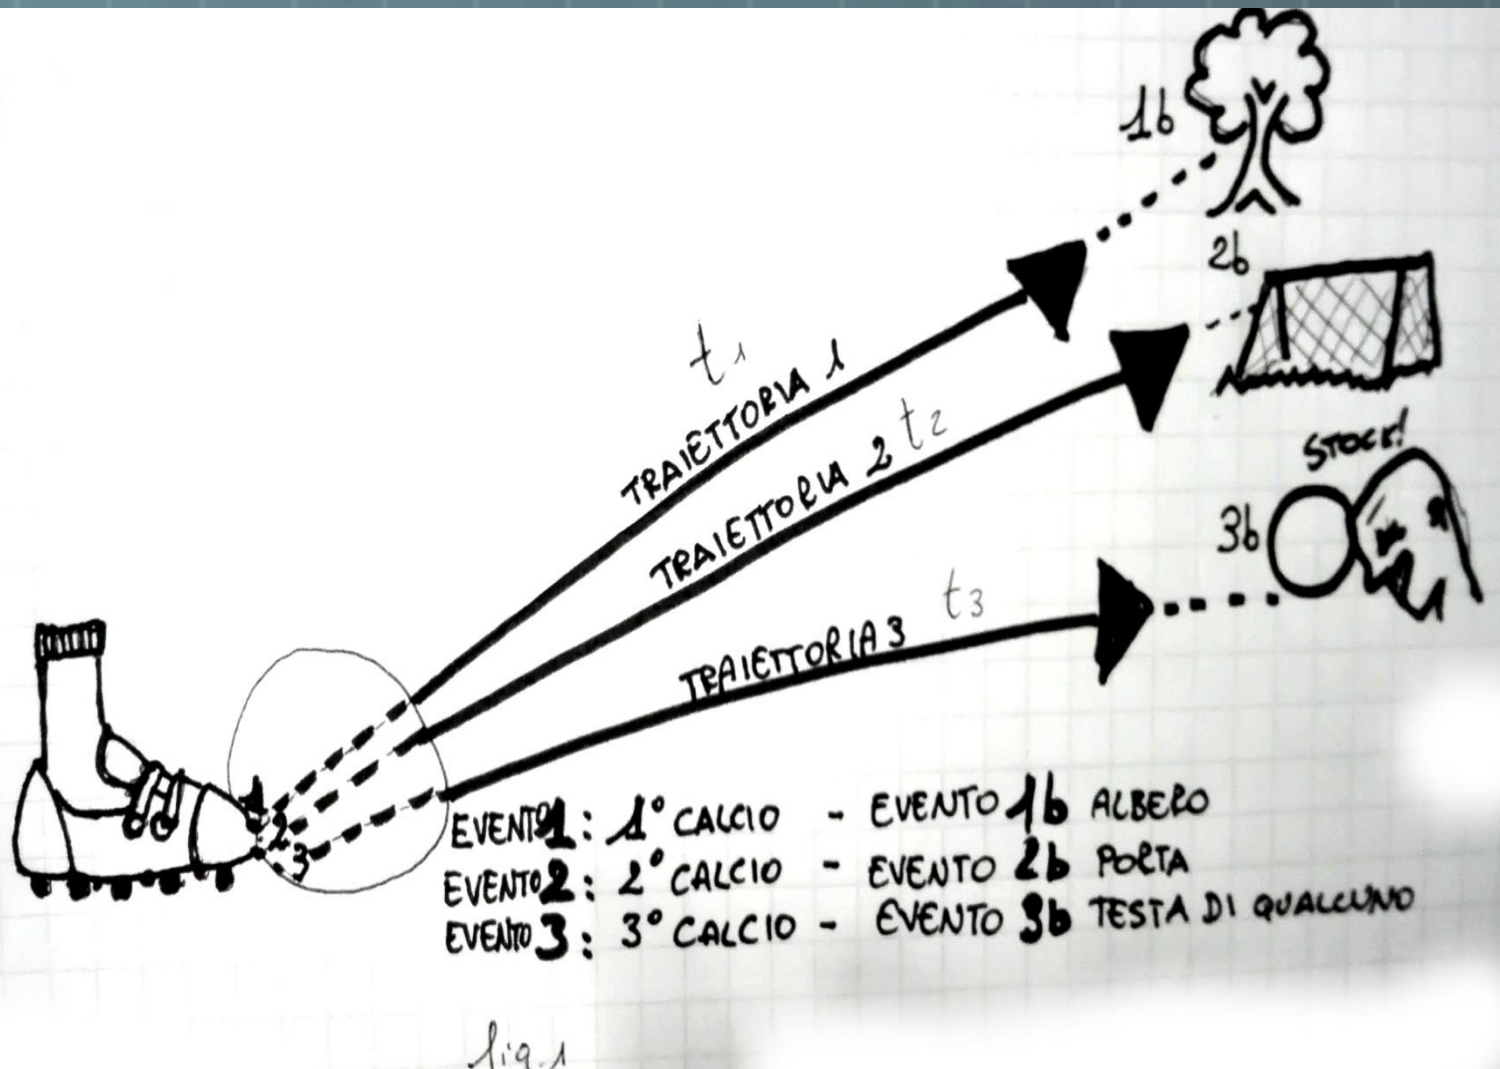 1b
2b
STOCK!
3b
t1
TRAIETTORIA 1
TRAIETTORIA 2 t2
TRAIETTORIA 3 t3
1
2
3
EVENTO 1: 1° CALCIO - EVENTO 1b ALBERO
EVENTO 2: 2° CALCIO - EVENTO 2b PORTA
EVENTO 3: 3° CALCIO - EVENTO 3b TESTA DI QUALCUNO
fig.1